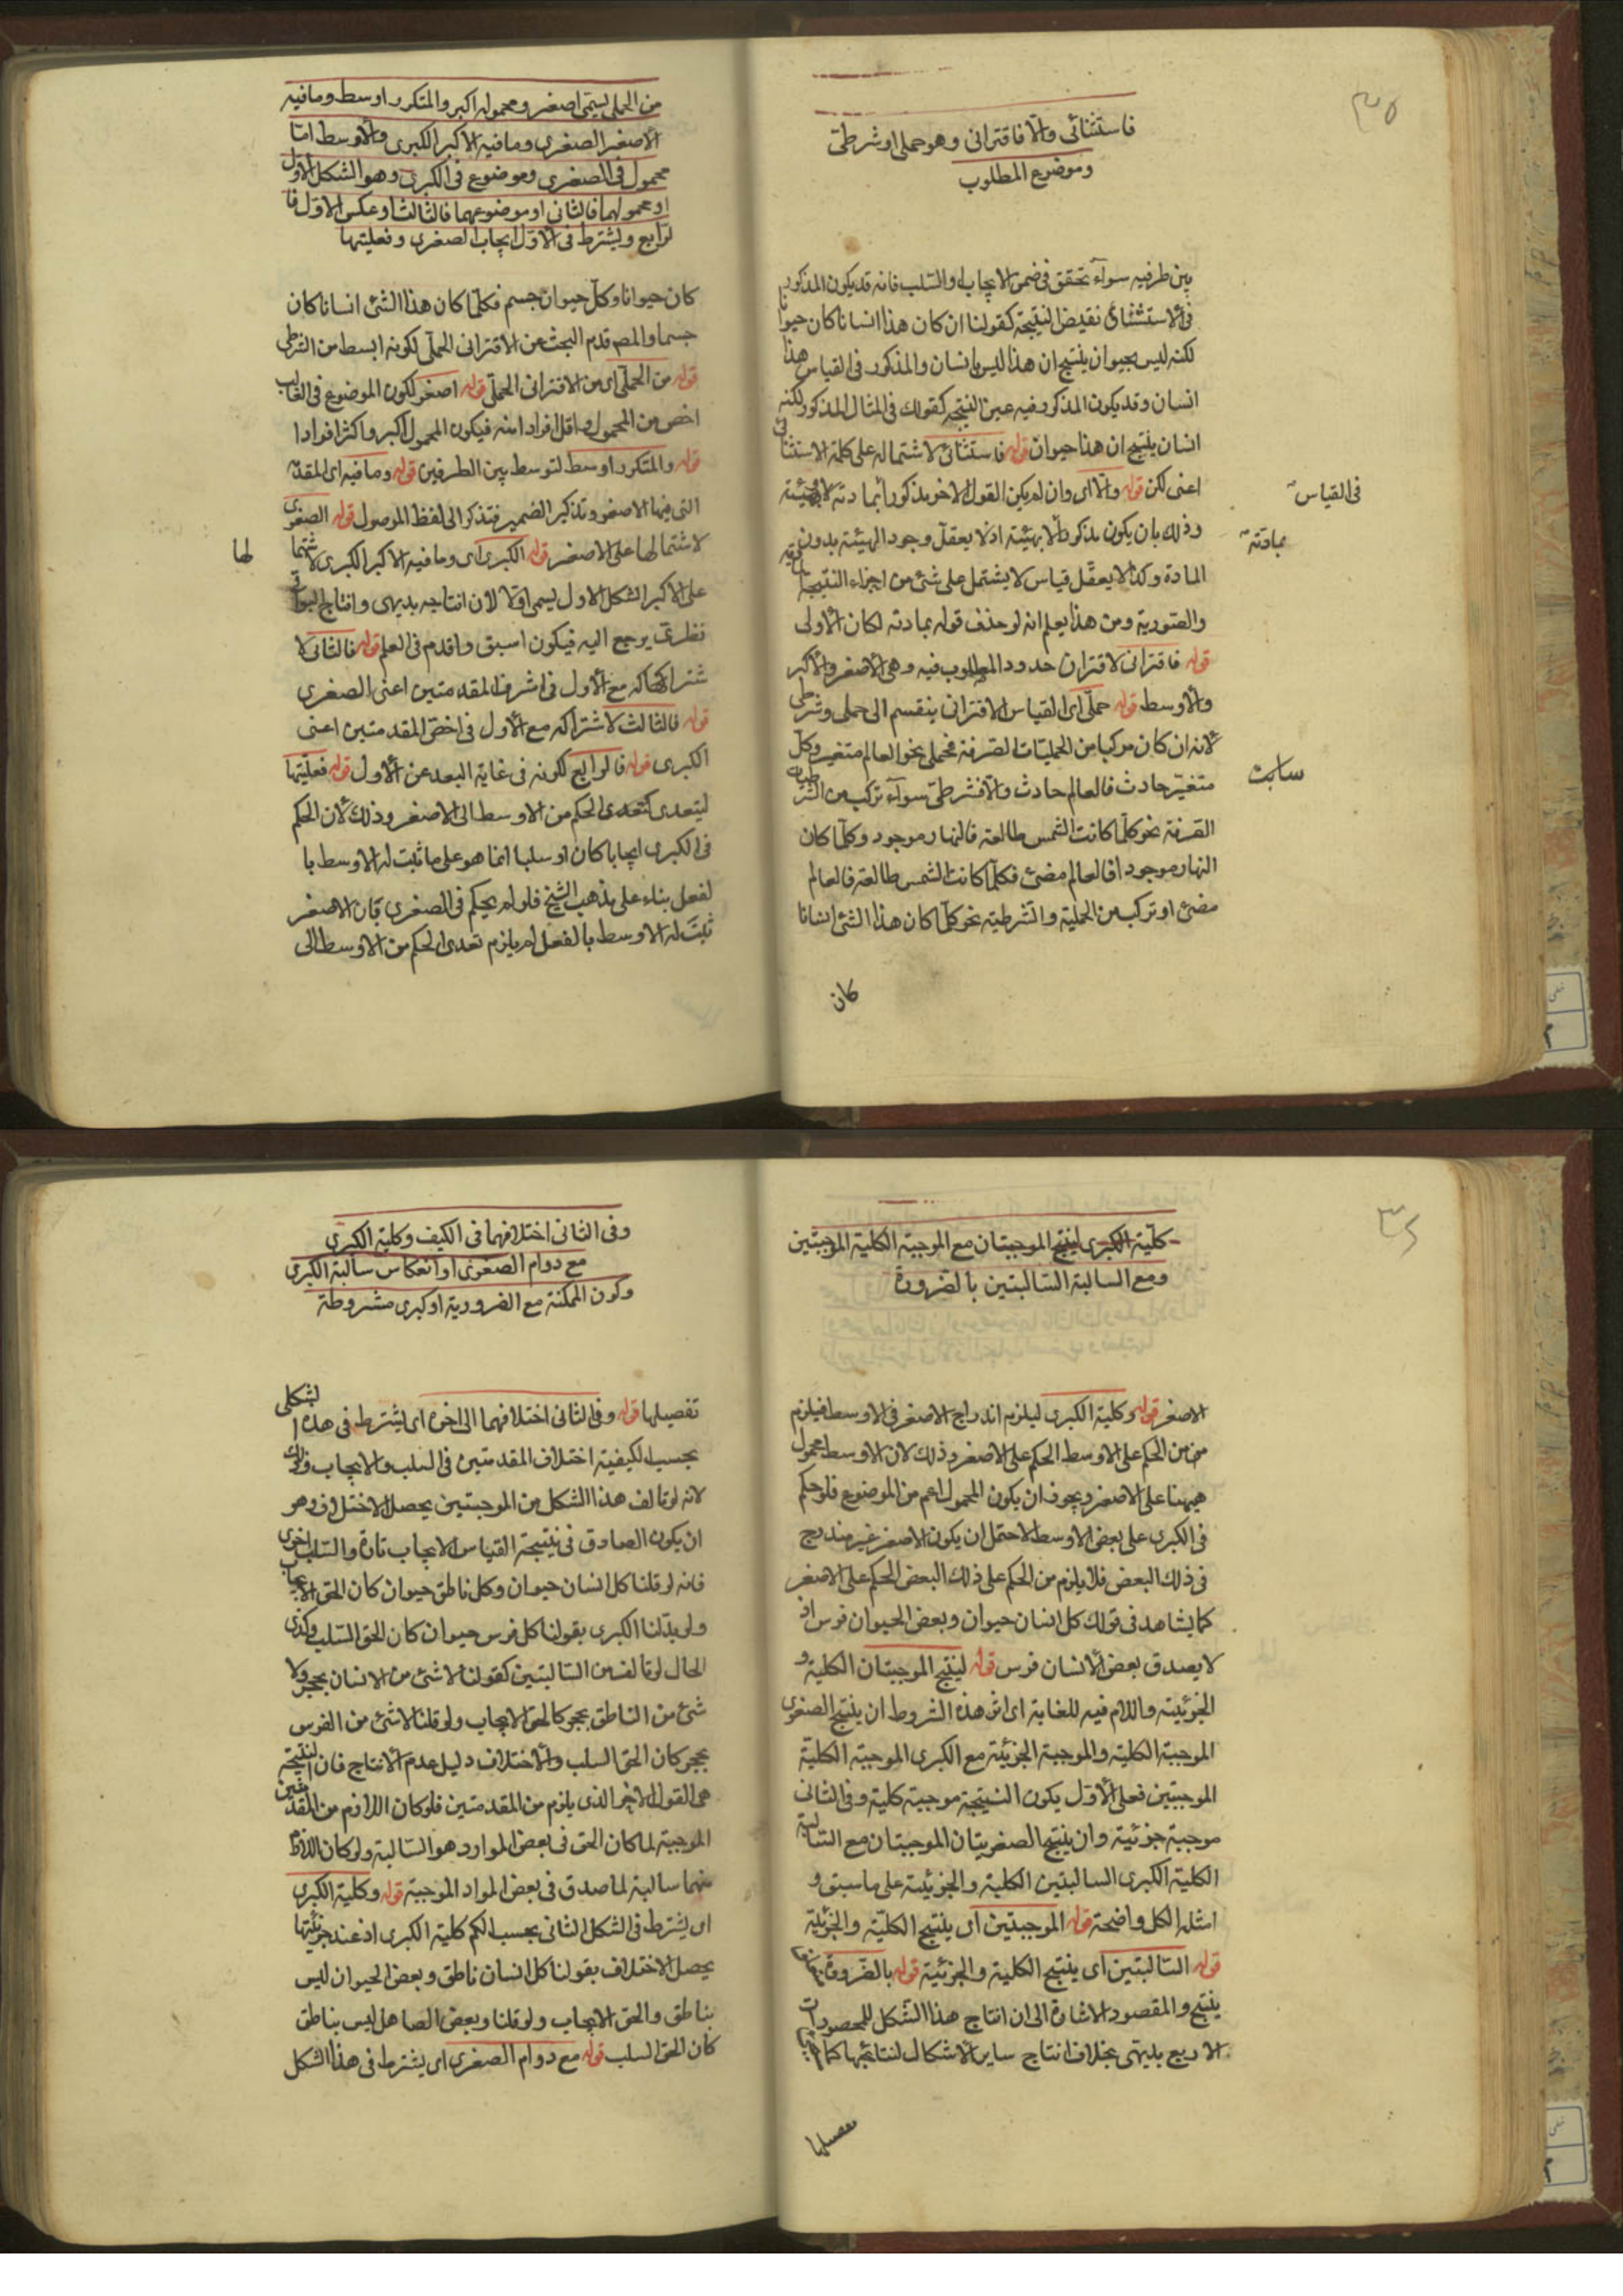 ٣٥
فاستثنائى والّا فاقترانى وهو حملى او شرطى
وموضوع المطلوب
بين طرفيه سوآء تحقق فى ضمن الايجاب او السّلب فانه قد يكون المذكور
فى الاستثنائى نقيض النتيجة كقولنا ان كان هذا انسانا كان حيوانا
لكنه ليس بحيوان ينتج ان هذا ليس بانسان والمذكور فى القياس هذا
انسان وقد يكون المذكور فيه عين النتيجه كقولك فى المثال المذكور لكنه
انسان ينتج ان هذا حيوان قوله فاستثنائى لاشتماله على كلمة الاستثناء
اعنى لكن قوله والّا اى وان لم يكن القول الاخر مذكورا بمادته لا بهيئته
فى القياس
وذلك بان يكون مذكورا لا بهيئته اذ لا يعقل وجود الهيئة بدون
بمادته
المادة وكذا لا يعقل قياس لا يشتمل على شئ من اجزاء النتيجة المادية
والصّورية ومن هذا يعلم انه لو حذف قوله بمادته لكان الأولى
قوله فاقترانى لاقتران حدود المطلوب فيه وهى الأصغر والأكبر
والأوسط قوله حملّى اى القياس الاقترانى ينقسم الى حملى وشرطى
لأنه ان كان مركبا من الحمليّات الصّرفة فحملى نحو العالم متغير وكلّ
متغيّر حادث فالعالم حادث والّا فشرطى سوآء تركب من الشّرطيات
الصّرفة نحو كلّما كانت الشمس طالعة فالنهار موجود وكلّما كان
النهار موجودا فالعالم مضئ فكلّما كانت الشمس طالعة فالعالم
مضئ او تركب من الحملية والشّرطية نحو كلّما كان هذا الشئ انسانا
كان
من الحملى يسمّى اصغر ومحموله اكبر والمتكرر اوسط وما فيه
الأصغر الصغرى وما فيه الاكبر الكبرى والأوسط امّا
محمول فى الصغرى وموضوع فى الكبرى وهو الشكل الأول
او محمولهما فالثانى او موضوعهما فالثالث او عكس الاوّل فا
لرّابع ويشترط فى الأوّل ايجاب الصغرى وفعليتها
كان حيوانا وكلّ حيوان جسم فكلّما كان هذا الشئ انسانا كان
جسما والمص قدم البحث عن الاقترانى الحملّى لكونه ابسط من الشرطى
قوله من الحملّى اى من الاقترانى الحملّى قوله اصغر لكون الموضوع فى الغالب
اخص من المحمول واقل افرادا منه فيكون المحمول اكبر واكثر افرادا
قوله والمتكرر اوسط لتوسط بين الطرفين قوله وما فيه اى المقدّمة
التى فيها الاصغر وتذكير الضمير فتذكر الى لفظ الموصول قوله الصغرى
لاشتمالها على الاصغر قوله الكبرى اى وما فيه الأكبر الكبرى لاشتما
لها
على الأكبر الشكل الاول يسمى اوّلا لأن انتاجه بديهى وانتاج البواقى
نظرىّ يرجع اليه فيكون اسبق واقدم فى العلم قوله فالثانى لا
شتراكه مع الأول فى اشرف المقدمتين اعنى الصغرى
قوله فالثالث لاشتراكه مع الأول فى اخصّ المقدمتين اعنى
الكبرى قوله فالرابع لكونه فى غاية البعد عن الأول قوله فعليّتها
ليتعدى الحكم من الاوسط الى الاصغر وذلك لأن الحكم
فى الكبرى ايجابا كان او سلبا انما هو على ما ثبت له الاوسط با
لفعل بناء على مذهب الشيخ فلو لم يحكم فى الصغرى بان الاصغر
ثبت له الاوسط بالفعل لم يلزم تعدى الحكم من الاوسط الى
كليّة الكبرى لينتج الموجبتان مع الموجبة الكلية الموجبتين
ومع السالبة السّالبتين بالضّرورة
الاصغر قوله وكلية الكبرى ليلزم اندراج الاصغر فى الاوسط فيلزم
من الحكم على الاوسط الحكم على الاصغر وذلك لأن الاوسط محمول
هيهنا على الاصغر ويجوز ان يكون المحمول اعم من الموضوع فلو حكم
فى الكبرى على بعض الاوسط لاحتمل ان يكون الاصغر غير مندرج
فى ذلك البعض فلا يلزم من الحكم على ذلك البعض الحكم على الاصغر
كما يشاهد فى قولك كل انسان حيوان وبعض الحيوان فرس اذ
لا يصدق بعض الأنسان فرس قوله لينتج الموجبتان الكلية و
الجزئية واللام فيه للغاية اى اثر هذه الشروط ان ينتج الصغرى
الموجبة الكلية والموجبة الجزئية مع الكبرى الموجبة الكلية
الموجبتين فعلى الأوّل يكون النتيجة موجبة كلية وفى الثانى
موجبة جزئية وان ينتج الصغريتان الموجبتان مع السّالبة
الكلية الكبرى السالبتين الكلية والجزئية على ما سبق و
امثلة الكل واضحة قوله الموجبتين اى ينتج الكليّة والجزئية
قوله السّالبتين اى ينتج الكلية والجزئية قوله بالضّرورة
ينتج والمقصود الاشارة الى ان انتاج هذا الشّكل للمحصورات
الاربع بديهى بخلاف انتاج ساير الأشكال لنتائجها كما
تفصيلها
وفى الثانى اختلافهما فى الكيف وكلية الكبرى
مع دوام الصغرى او انعكاس سالبة الكبرى
وكون الممكنة مع الضرورية او كبرى مشروطة
تفصيلها قوله وفى الثانى اختلافهما الى اخره اى يشترط فى هذا الشكل
بحسب الكيفية اختلاف المقدمتين فى السلب والايجاب وذلك
لأنه لو تالف هذا الشكل من الموجبتين يحصل الاختلاف وهو
ان يكون الصادق فى نتيجة القياس الايجاب تارة والسّلب اخرى
فانه لو قلنا كل انسان حيوان وكل ناطق حيوان كان الحق الايجاب
ولو بدّلنا الكبرى بقولنا كل فرس حيوان كان الحق السّلب وكذا
الحال لو تالف من السّالبتين كقولنا لا شئ من الانسان بحجر ولا
شئ من الناطق بحجر كا لحق الايجاب ولو قلنا لا شئ من الفرس
بحجر كان الحق السلب والأختلاف دليل عدم الأنتاج فان النتيجة
هى القول الاخر الذى يلزم من المقدمتين فلو كان اللازم من المقدمتين
الموجبة لما كان الحق فى بعض الموارد هو السّالبة ولو كان اللازم
منهما سالبة لما صدق فى بعض المواد الموجبة قوله وكلية الكبرى
اى يشترط فى الشكل الثانى بحسب الكم كلية الكبرى اذ عند جزئيتها
يحصل الاختلاف بقولنا كل انسان ناطق وبعض الحيوان ليس
بناطق والحق الايجاب ولو قلنا وبعض الصاهل ليس بناطق
كأن الحق السلب قوله مع دوام الصغرى اى يشترط فى هذا الشكل